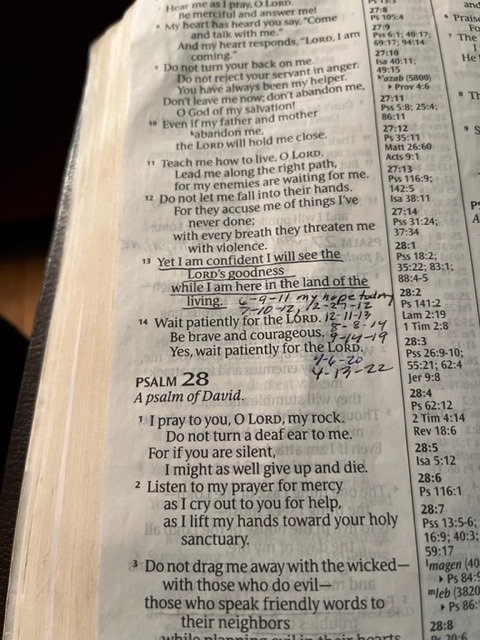 Hear me as I pray, O LORD.
Be merciful and answer me!
8 My heart has heard you say, "Come
and talk with me."
And my heart responds, "LORD, I am
coming."
9 Do not turn your back on me.
Do not reject your servant in anger.
You have always been my helper.
Don't leave me now; don't abandon me,
O God of my salvation!
10 Even if my father and mother
abandon me,
the LORD will hold me close.
11 Teach me how to live, O LORD.
Lead me along the right path,
for my enemies are waiting for me.
12 Do not let me fall into their hands.
For they accuse me of things I've
never done;
with every breath they threaten me
with violence.
13 Yet I am confident I will see the
LORD's goodness
while I am here in the land of the
living. 6-9-11 my hope today
7-10-12, 12-27-12
14 Wait patiently for the LORD. 12-11-13
8-8-14
Be brave and courageous. 9-14-19
Yes, wait patiently for the LORD.
4-6-20
4-13-22
PSALM 28
A psalm of David.
1 I pray to you, O LORD, my rock.
Do not turn a deaf ear to me.
For if you are silent,
I might as well give up and die.
2 Listen to my prayer for mercy
as I cry out to you for help,
as I lift my hands toward your holy
sanctuary.
3 Do not drag me away with the wicked—
with those who do evil—
those who speak friendly words to
their neighbors
while planning evil in their hearts
27:8
Ps 105:4
27:9
Pss 6:1; 40:17;
69:17; 94:14
27:10
Isa 40:11;
49:15
ʰ'azab (5800)
▸ Prov 4:6
27:11
Pss 5:8; 25:4;
86:11
27:12
Ps 35:11
Matt 26:60
Acts 9:1
27:13
Pss 116:9;
142:5
Isa 38:11
27:14
Pss 31:24;
37:34
28:1
Pss 18:2;
35:22; 83:1;
88:4-5
28:2
Ps 141:2
Lam 2:19
1 Tim 2:8
28:3
Pss 26:9-10;
55:21; 62:4
Jer 9:8
28:4
Ps 62:12
2 Tim 4:14
Rev 18:6
28:5
Isa 5:12
28:6
Ps 116:1
28:7
Pss 13:5-6;
16:9; 40:3;
59:17
28:8